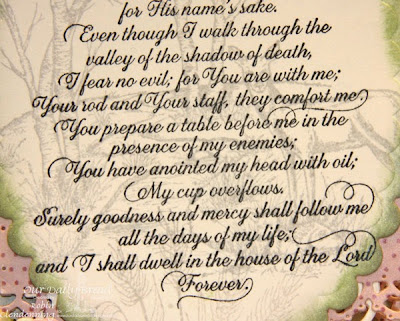 for His name's sake.
Even though I walk through the
valley of the shadow of death,
I fear no evil; for You are with me;
Your rod and Your staff, they comfort me.
You prepare a table before me in the
presence of my enemies;
You have anointed my head with oil;
My cup overflows.
Surely goodness and mercy shall follow me
all the days of my life;
and I shall dwell in the house of the Lord
Forever.
Our Daily